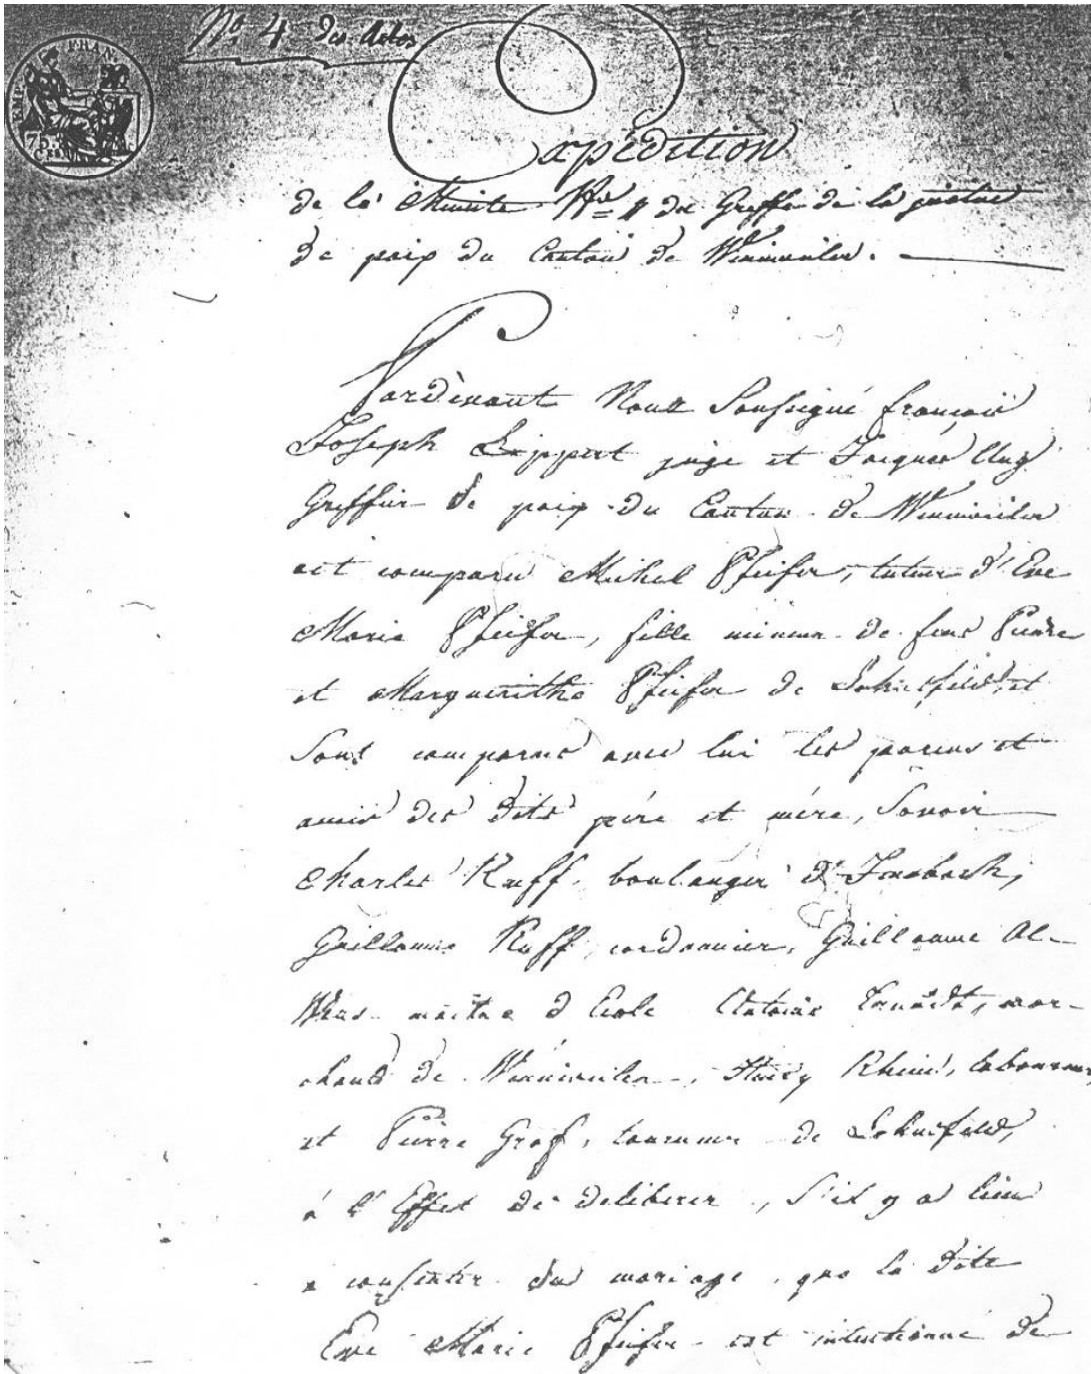 No 4 des Actes
EMP. FRAN.
75.
Expédition
de la Minute No du Greffe de la justice
de paix du Canton de Winnweiler.
Pardevant Nous Soussigné François
Joseph Lippert juge et Jacques
Greffier de paix du Canton de Winnweiler
est comparu Michel Pfeifer, tuteur d'Eve
Marie Pfeifer, fille mineure de feus Pierre
et Marguerithe Pfeifer de Lohnsfeld, et
Sont comparus avec lui les parens et
amis des dits père et mère, Savoir
Charles Ruff, boulanger d'Imsbach,
Guillaume Ruff, cordonnier, Guillaume Al-
maitre d'Ecole Antoine mar-
chand de Winnweiler, Rheim, laboureur
et Pierre Graf, tourneur de Lohnsfeld,
à l'Effet de deliberer, S'il y a lieu
a consentir au mariage, que la dite
Eve Marie Pfeifer est intentionné de